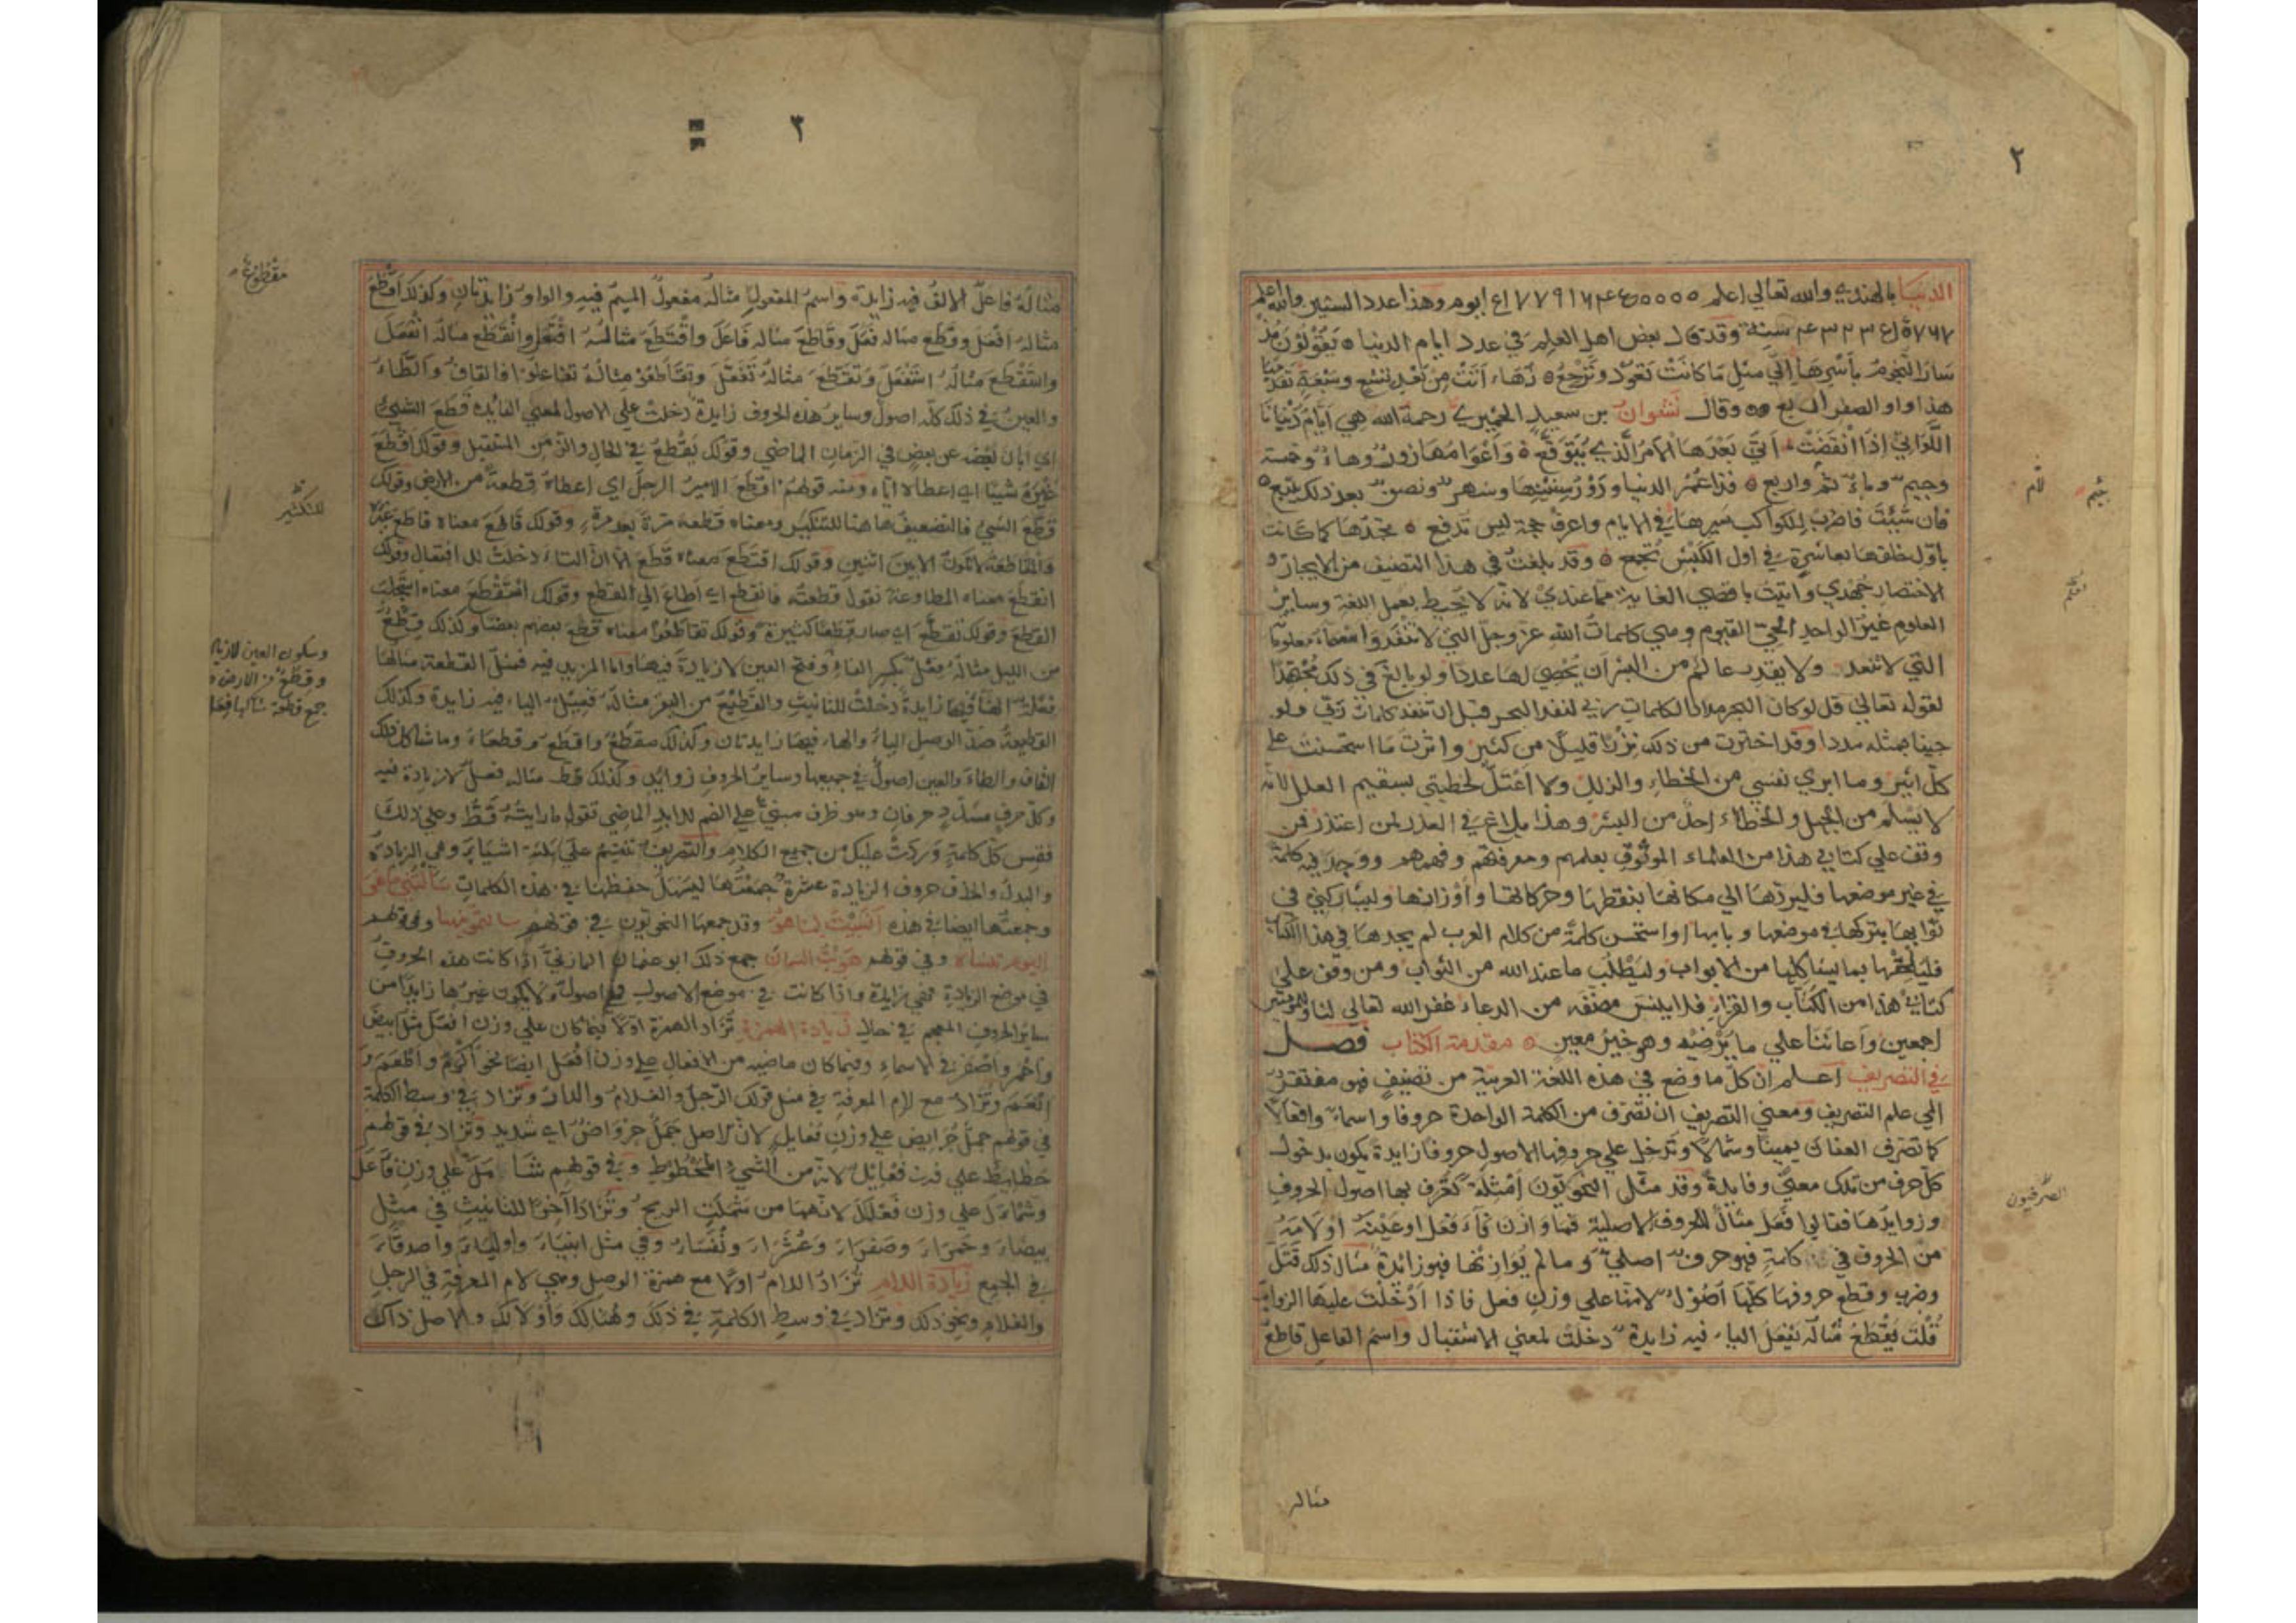 ٢
الدنيا بالهندي والله تعالى اعلم
سنة وقد قال بعض اهل العلم في عدد ايام الدنيا يقولون مذ
سار النجوم بأسرها الي مثل ما كانت تعود وترجع
وقال نشوان بن سعيد الحميري رحمة الله هي ايام دنيانا
اللواتي إذا انقضت أتي بعدها الأمر الذي يتوقع وأعوامها
وجيم ثم واربع فذا عمر الدنيا بعد ذلك تتبع
فان شئت فاضرب للكواكب سيرها في الايام واعرف حجة ليس تدفع تجدها كما كانت
بأول خلقها في اول الكبش تجمع وقد بلغت في هذا التصنيف من الايجاز و
الاختصار جهدي واتيت باقصي الغاية مما عندي لانه لا يحيط بعمل اللغة وساير
العلوم غير الواحد الحي القيوم وهي كلمات الله عز وجل التي لا تنفد
التي لا تعد ولا يقدر عالم من البشر ان يحصي لها عددا ولو بالغ في ذلك مجتهدا
لقوله تعالي قل لو كان البحر مدادا لكلمات ربي لنفد البحر قبل ان تنفد كلمات ربي ولو
جينا بمثله مددا وقد اخترت من ذلك نزرا قليلا من كثير واثرت ما استحسنت علي
كل اثير وما ابري نفسي من الخطاء والزلل ولا اعتل لخطيتي بسقيم العلل لانه
لا يسلم من الجهل والخطاء احد من البشر وهذا بلاغ في العذر لمن اعتذر فمن
وقف علي كتابي هذا من العلماء الموثوق بعلمهم ومعرفتهم وفهمهم ووجد فيه كلمة
في غير موضعها فليردها الي مكانها بنقطها وحركاتها وأوزانها وليشاركني في
ثوابها بتركها في موضعها وبابها او استحسن كلمة من كلام العرب لم يجدها في هذا الكتاب
فليلحقها بما يشاكلها من الابواب وليطلب ما عند الله من الثواب ومن وقف علي
كتابي هذا من الكتاب والقراء فلا ينس مصنفه من الدعاء غفر الله تعالي لنا وللمومنين
اجمعين وأعاننا علي ما يرضيه وهو خير معين مقدمة الكتاب فصل
في التصريف اعلم ان كل ما وضع في هذه اللغة العربية من تصنيف فهو مفتقر
الي علم التصريف ومعني التصريف ان تصرف من الكلمة الواحدة حروفا واسماء وافعالا
كما تصرف العنان يمينا وشمالا وتدخل علي حروفها الاصول حروفا زايدة يكون بدخول
كل حرف من تلك معني وفايدة وقد مثل النحويون أمثلة تعرف بها اصول الحروف
وزوايدها فقالوا فعل مثال للحروف الاصلية فما وازن فاء فعل او عينه او لامه
من الحروف في كلمة فهو حرف اصلي وما لم يوازنها فهو زائدة مثال ذلك قتل
وضرب وقطع حروفها كلها أصول لانها علي وزن فعل فاذا أدخلت عليها الزوايد
قلت يقطع مثاله يفعل الياء فيه زايدة دخلت لمعني الاستقبال واسم الفاعل قاطع
لام
جيم
الصرفيون
مثاله
٣
مثاله فاعل الالف فيه زايدة واسم المفعول مثاله مفعول الميم فيه والواو زايدتان وكذلك أقطع
مثاله افعل وقطع مثاله فعل وقاطع مثاله فاعل واقتطع مثاله افتعل وانقطع مثاله انفعل
واستقطع مثاله استفعل وتقطع مثاله تفعل وتقاطعوا مثاله تفاعلوا فالقاف والطاء
والعين في ذلك كله اصول وساير هذه الحروف زايدة دخلت علي الاصول لمعني الفايدة قطع الشيئ
اي ابان بعضه عن بعض في الزمان الماضي وقولك يقطع في الحال والزمن المستقبل وقولك اقطع
غيره شيئا اي اعطاه اياه ومنه قولهم اقطع الامير الرجل اي اعطاه قطعة من الارض وقولك
قطع الشيئ فالتضعيف هاهنا للتكثير ومعناه قطعه مرة بعد مرة وقولك قاطع معناه قاطع غيره
والمقاطعة لا تكون الا بين اثنين وقولك اقتطع معناه قطع الا ان التاء دخلت للافتعال وقولك
انقطع معناه المطاوعة تقول قطعته فانقطع اي اطاع الي القطع وقولك استقطع معناه
القطع وقولك تقطع اي صار قطعا كثيرة وقولك تقاطعوا معناه قطع بعضهم بعضا وكذلك قطع
من الليل مثاله فعل بكسر الفاء وفتح العين لا زيادة فيها واما المزيد فيه فمثل القطعة مثالها
فعلة الهاء فيها زايدة دخلت للتانيث والقطيع من البقر مثاله فعيل الياء فيه زايدة وكذلك
القطيعة ضد الوصل الياء والهاء فيها زايدتان وكذلك مقطع واقطع وقطعاء وما شاكل ذلك
القاف والطاء والعين اصول في جميعها وساير الحروف زوايد وكذلك قط مثاله فعل لا زيادة فيه
وكل حرف مشدد حرفان وهو ظرف مبني علي الضم للابد الماضي تقول ما رايته قط وعلي ذلك
فقس كل كلمة وردت عليك من جميع الكلام والتصريف ينقسم علي ثلثة اشياء وهي الزيادة
والبدل والحذف حروف الزيادة عشرة جمعتها ليسهل حفظها في هذه الكلمات
وجمعتها ايضا في هذه وقد جمعها النحويون في قولهم سالتمونيها وفي قولهم
اليوم تنساه وفي قولهم هويت السمان جمع ذلك ابو عثمان المازني اذا كانت هذه الحروف
في موضع الزيادة فهي زايدة واذا كانت في موضع الاصول فهي اصول ولا يكون غيرها زايدا من
ساير الحروف المعجم في حال زيادة الهمزة تزاد الهمزة اولا فيما كان علي وزن افعل مثل ابيض
وأحمر واصفر في الاسماء وفيما كان ماضيه من الافعال علي وزن أفعل ايضا نحو أكرم واطعم و
انعم وتزاد مع لام المعرفة في مثل قولك الرجل والغلام والدار وتزاد في وسط الكلمة
في قولهم جمل جرايض علي وزن فعايل لان الاصل جمل جرواض اي شديد وتزاد في قولهم
حطايط علي وزن فعائل لانه من الشيئ المحطوط وفي قولهم شأمل علي وزن فأعل
وشمأل علي وزن فعلل لانهما من شملت الريح وتزاد آخرا للتانيث في مثل
بيضاء وحمراء وصفراء وعشراء ونفساء وفي مثل انبياء وأولياء واصدقاء
في الجميع زيادة اللام تزاد اللام اولا مع همزة الوصل وهي لام المعرفة في الرجل
والغلام ونحو ذلك وتزاد في وسط الكلمة في ذلك وهنالك وأولالك والاصل ذاك
مقطوع
للتكثير
وسكون العين لا زيادة
وقطع من الارض
جمع قطعة